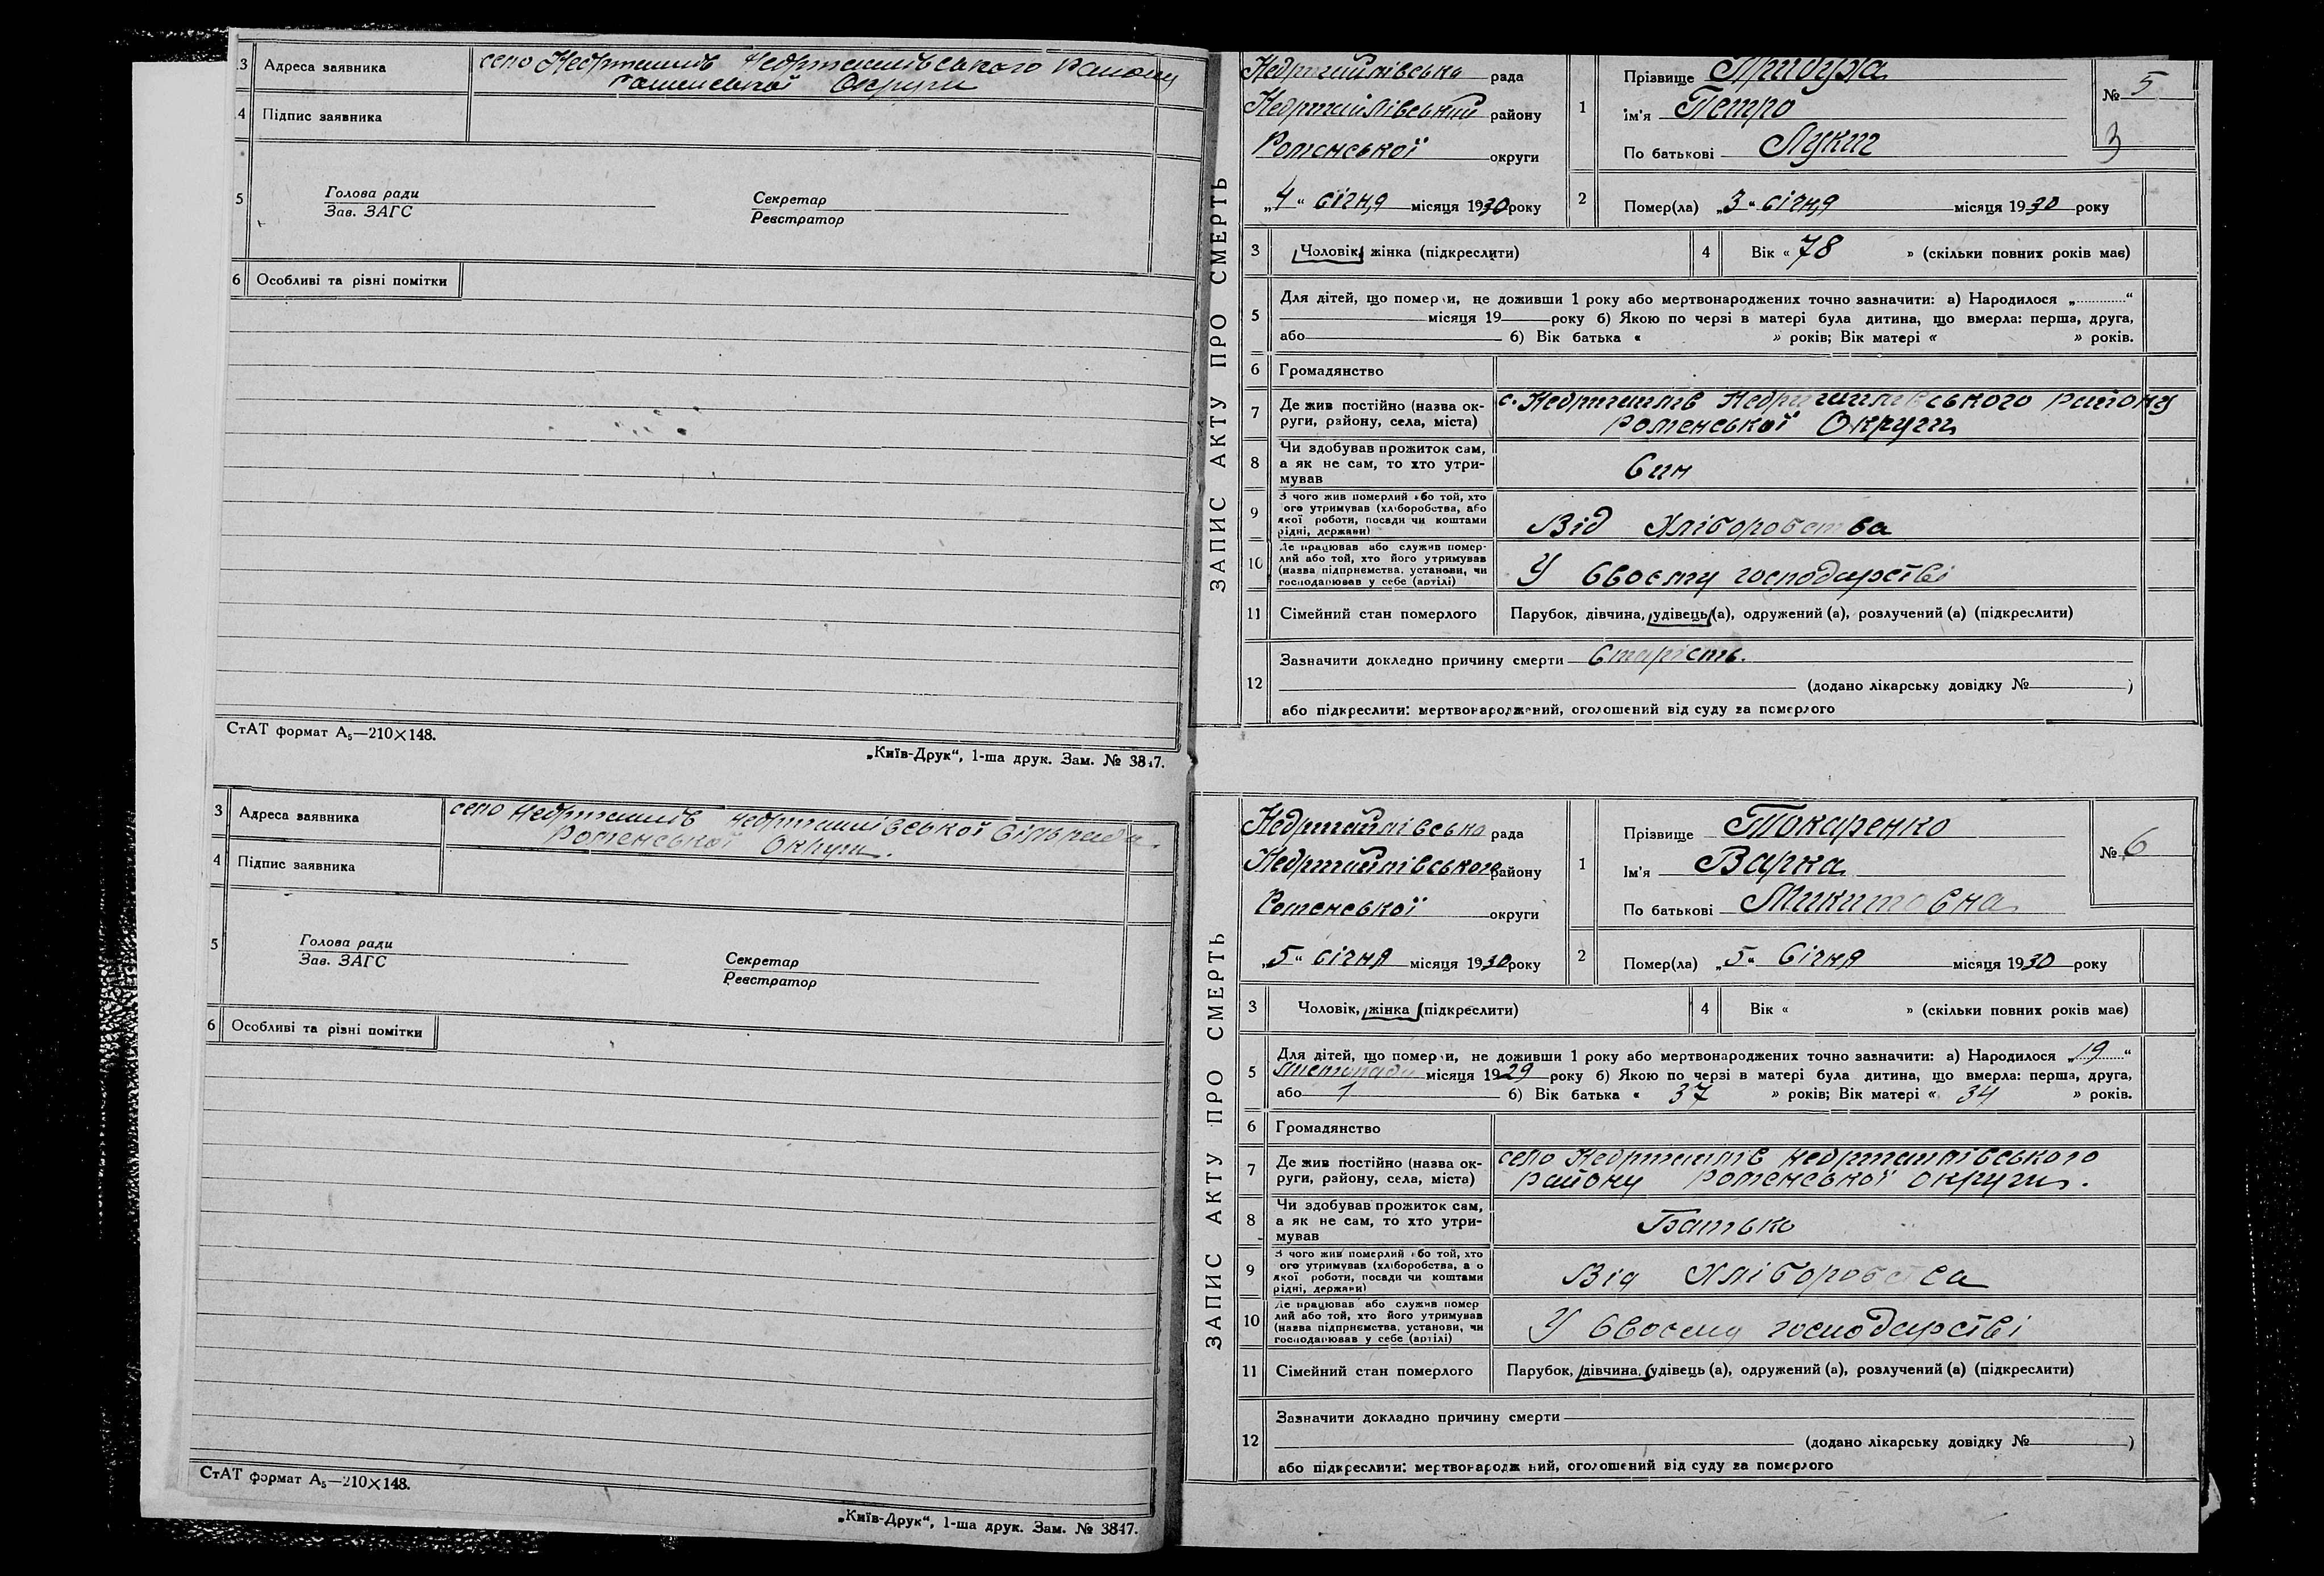 3 Адреса заявника село Недригайлів Недригайлівського району
Роменської Округи
4 Підпис заявника
5 Голова ради
Зав. ЗАГС
Секретар
Реєстратор
6 Особливі та різні помітки
СтАТ формат А₅—210×148.
„Київ-Друк“, 1-ша друк. Зам. № 3847.
3 Адреса заявника село Недригайлів Недригайлівської сільради
Роменської Округи.
4 Підпис заявника
5 Голова ради
Зав. ЗАГС
Секретар
Реєстратор
6 Особливі та різні помітки
СтАТ формат А₅—210×148.
„Київ-Друк“, 1-ша друк. Зам. № 3847.
ЗАПИС АКТУ ПРО СМЕРТЬ
Недригайлівська рада
Недригайлівський району
Роменської округи
„4“ січня місяця 1930 року
1 Прізвище
ім'я Петро
По батькові Лукич
№ 5
3
2 Помер(ла) „3“ січня місяця 1930 року
3 Чоловік, жінка (підкреслити)
4 Вік « 78 » (скільки повних років має)
5 Для дітей, що померли, не доживши 1 року або мертвонароджених точно зазначити: а) Народилося „ “
місяця 19 року б) Якою по черзі в матері була дитина, що вмерла: перша, друга,
або б) Вік батька « » років; Вік матері « » років.
6 Громадянство
7 Де жив постійно (назва ок-
руги, району, села, міста)
с. Недригайлів Недригайлівського району
Роменської Округи
8 Чи здобував прожиток сам,
а як не сам, то хто утри-
мував
Син
9 З чого жив померлий або той, хто
ого утримував (хліборобства, або
якої роботи, посади чи коштами
рідні, держави)
Від Хліборобства
10 Де працював або служив помер-
лий або той, хто його утримував
(назва підприємства, установи, чи
господарював у себе (артілі)
У Своєму господарстві
11 Сімейний стан померлого Парубок, дівчина, удівець (а), одружений (а), розлучений (а) (підкреслити)
12 Зазначити докладно причину смерти Старість.
(додано лікарську довідку № )
або підкреслити: мертвонароджений, оголошений від суду за померлого
ЗАПИС АКТУ ПРО СМЕРТЬ
Недригайлівська рада
Недригайлівського району
Роменської округи
„5“ січня місяця 1930 року
1 Прізвище Токаренко
Ім'я Варка
По батькові Микитовна
№ 6
2 Помер(ла) „5“ Січня місяця 1930 року
3 Чоловік, жінка (підкреслити)
4 Вік « » (скільки повних років має)
5 Для дітей, що померли, не доживши 1 року або мертвонароджених точно зазначити: а) Народилося „19“
Листопада місяця 1929 року б) Якою по черзі в матері була дитина, що вмерла: перша, друга,
або 1 б) Вік батька « 37 » років; Вік матері « 34 » років.
6 Громадянство
7 Де жив постійно (назва ок-
руги, району, села, міста)
село Недригайлів Недригайлівського
Району Роменської Округи.
8 Чи здобував прожиток сам,
а як не сам, то хто утри-
мував
Батько
9 З чого жив померлий або той, хто
ого утримував (хліборобства, а о
якої роботи, посади чи коштами
рідні, держави)
Від Хліборобства
10 Де працював або служив помер
лий або той, хто його утримував
(назва підприємства, установи, чи
господарював у себе (артілі)
У Своєму господарстві
11 Сімейний стан померлого Парубок, дівчина, удівець (а), одружений (а), розлучений (а) (підкреслити)
12 Зазначити докладно причину смерти
(додано лікарську довідку № )
або підкреслити: мертвонароджений, оголошений від суду за померлого